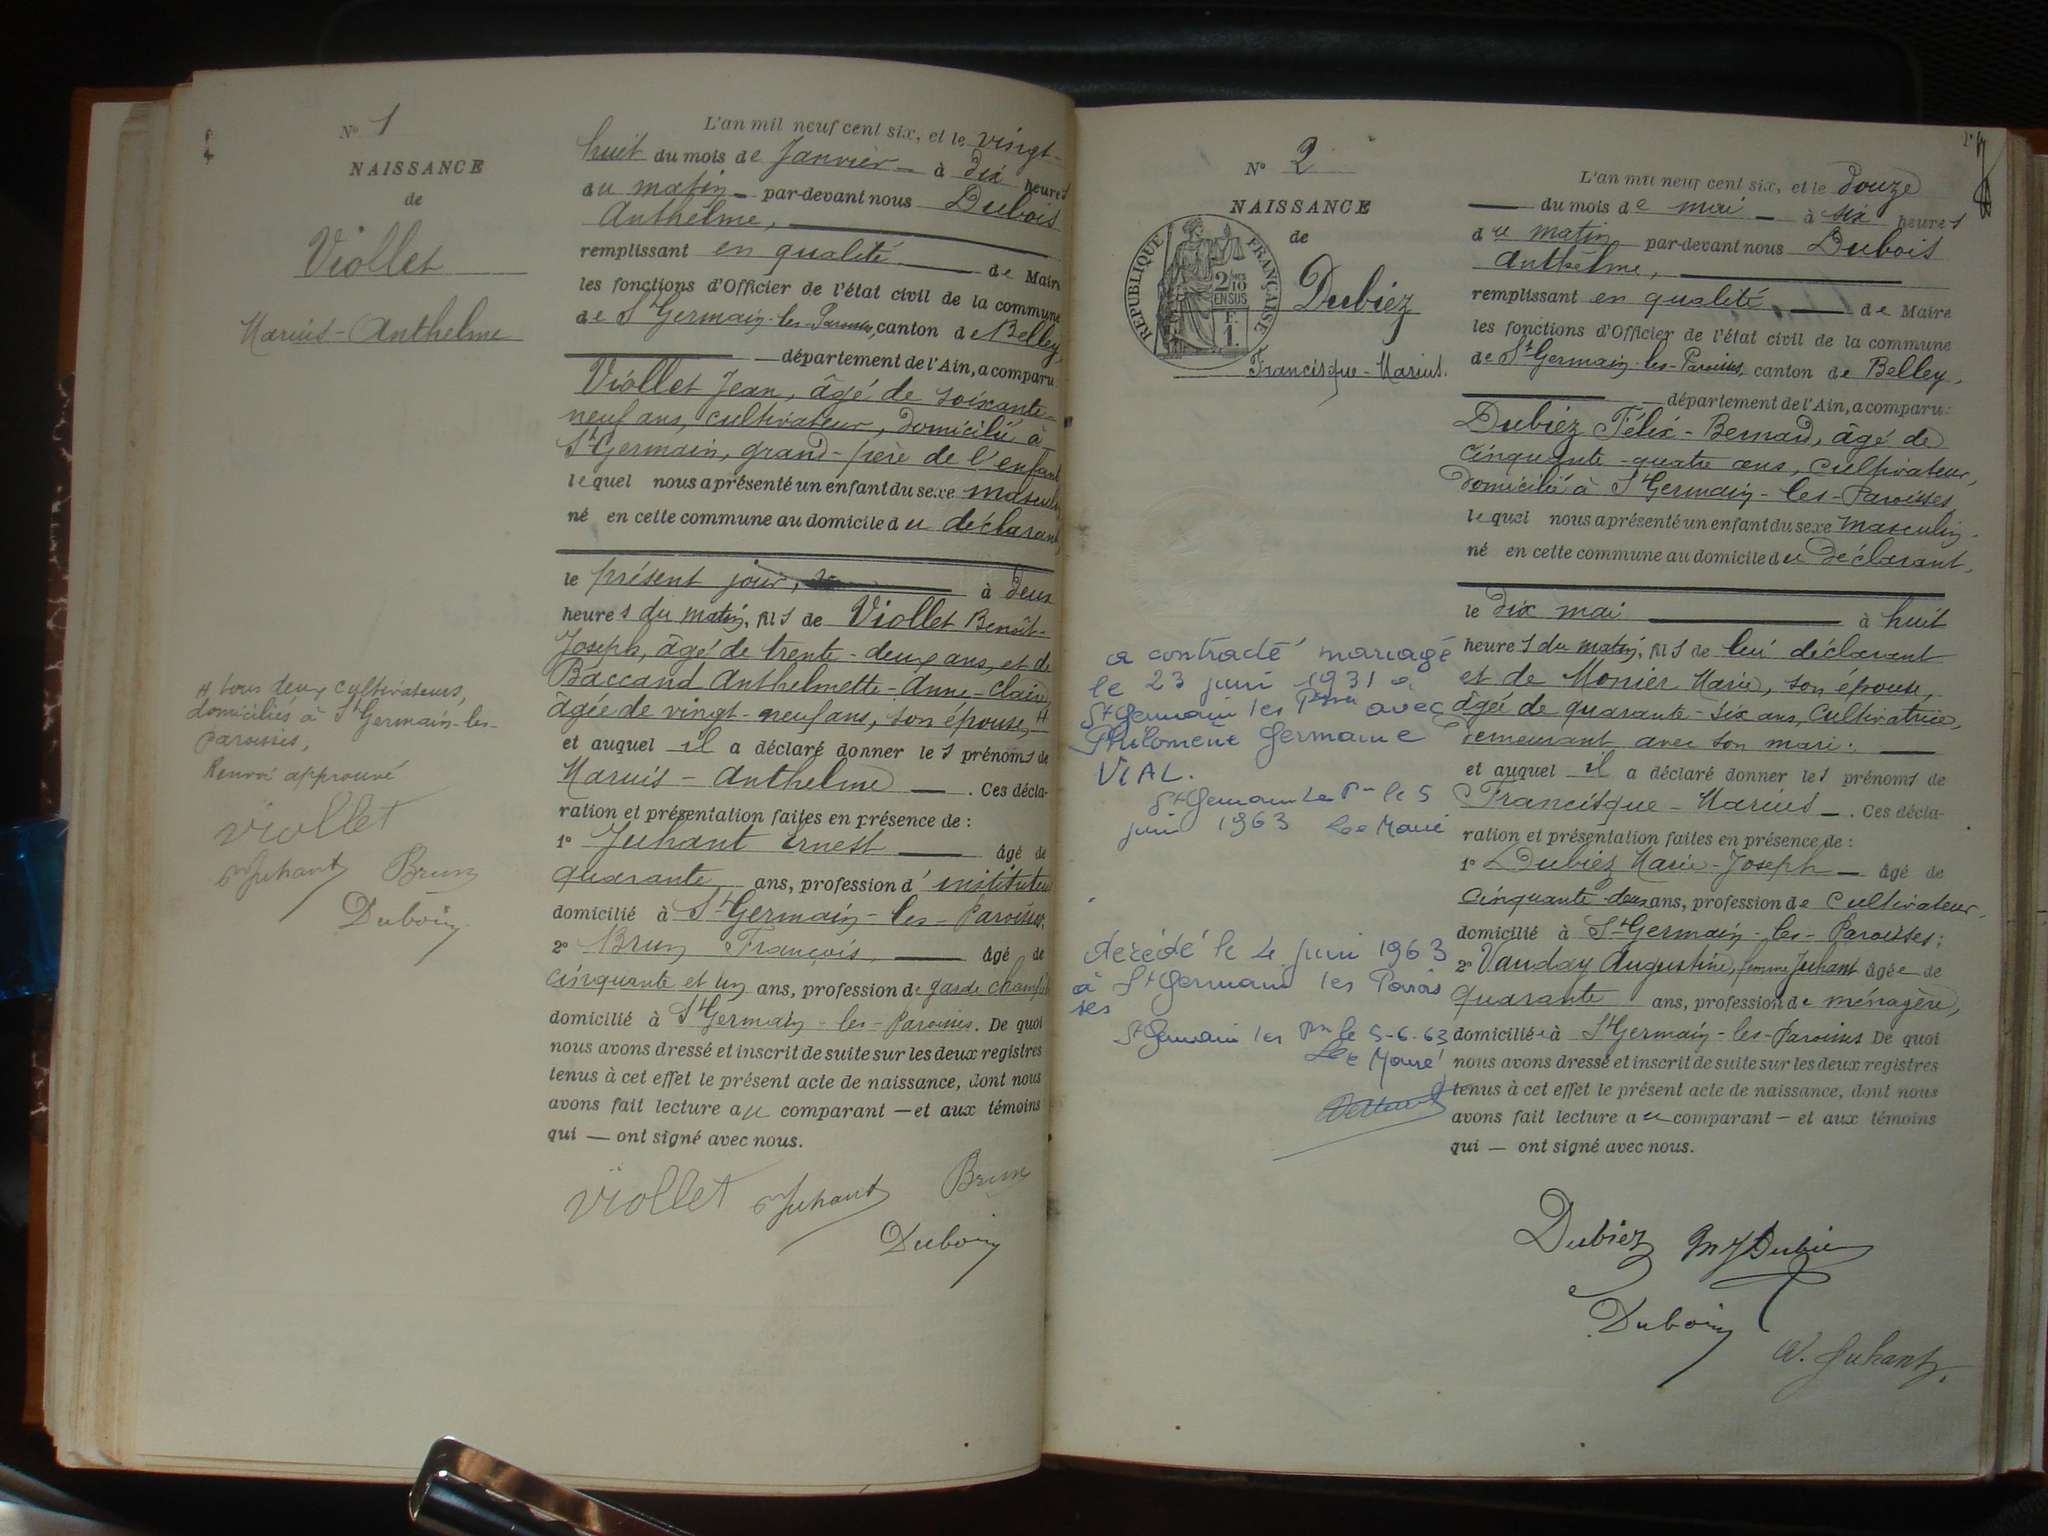 N° 1
NAISSANCE
de
Viollet
Marius-Anthelme
L'an mil neuf cent six, et le vingt-
huit du mois de Janvier — à dix heures
du matin — par-devant nous Dubois
Anthelme,
remplissant en qualité de Maire
les fonctions d'Officier de l'état civil de la commune
de St Germain-les-Paroisses, canton de Belley,
département de l'Ain, a comparu
Viollet Jean, âgé de soixante-
neuf ans, cultivateur, domicilié à
St Germain, grand-père de l'enfant
lequel nous a présenté un enfant du sexe masculin
né en cette commune au domicile du déclarant,
le présent jour, à deux
heures du matin, fils de Viollet Benoît-
Joseph, âgé de trente-deux ans, et de
Baccand Anthelmette-Anne-Claire
âgée de vingt-neuf ans, son épouse, #
et auquel il a déclaré donner les prénoms de
Marius-Anthelme — . Ces décla-
ration et présentation faites en présence de :
1° Juhant Ernest — âgé de
quarante ans, profession d'instituteur
domicilié à St Germain-les-Paroisses,
2° Brun François, — âgé de
cinquante et un ans, profession de garde champêtre
domicilié à St Germain-les-Paroisses. De quoi
nous avons dressé et inscrit de suite sur les deux registres
tenus à cet effet le présent acte de naissance, dont nous
avons fait lecture au comparant — et aux témoins
qui — ont signé avec nous.
# tous deux cultivateurs,
domiciliés à St Germain-les-
Paroisses,
Renvoi approuvé
Viollet
Juhant Brun
Dubois
Viollet Juhant Brun
Dubois
N° 2
NAISSANCE
de
RÉPUBLIQUE FRANÇAISE
2/10
EN SUS
F.
1.
Dubiez
Francisque-Marius.
L'an mil neuf cent six, et le douze
— du mois de mai — à six heures
du matin par-devant nous Dubois
Anthelme,
remplissant en qualité — de Maire
les fonctions d'Officier de l'état civil de la commune
de St Germain-les-Paroisses, canton de Belley,
département de l'Ain, a comparu :
Dubiez Félix-Bernard, âgé de
cinquante-quatre ans, cultivateur,
domicilié à St Germain-les-Paroisses
lequel nous a présenté un enfant du sexe masculin
né en cette commune au domicile du déclarant,
le dix mai — à huit
heures du matin, fils de lui déclarant
et de Monier Marie, son épouse,
âgée de quarante-six ans, cultivatrice,
demeurant avec son mari. —
et auquel il a déclaré donner les prénoms de
Francisque-Marius — . Ces décla-
ration et présentation faites en présence de :
1° Dubiez Marie-Joseph — âgé de
cinquante-deux ans, profession de cultivateur,
domicilié à St Germain-les-Paroisses;
2° Vauday Augustine, femme Juhant âgée de
quarante ans, profession de ménagère,
domiciliée à St Germain-les-Paroisses De quoi
nous avons dressé et inscrit de suite sur les deux registres
tenus à cet effet le présent acte de naissance, dont nous
avons fait lecture au comparant — et aux témoins
qui — ont signé avec nous.
a contracté mariage
le 23 juin 1931 à
St Germain les Psses avec
Philomène Germaine
VIAL.
St Germain les P le 5
juin 1963 Le Maire
décédé le 4 juin 1963
à St Germain les Parois
ses
St Germain les P le 5-6-63
Le Maire
Dubiez MJ Dubiez
Dubois
A. Juhant